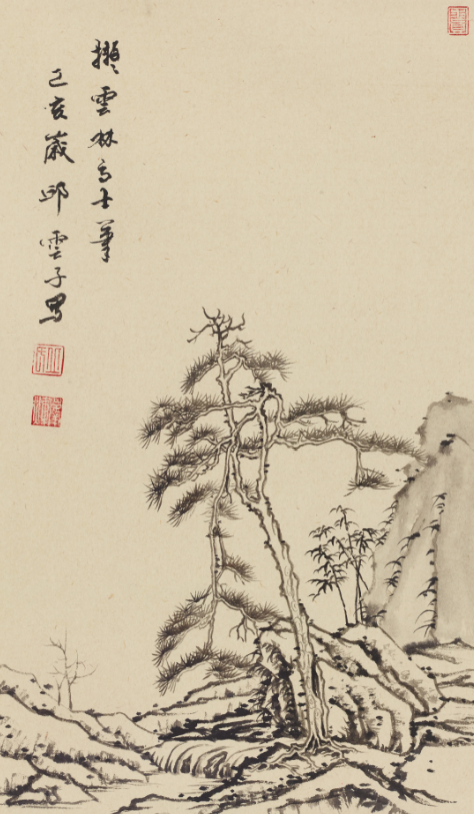 擬雲林高士筆
己亥歲邱雲子寫